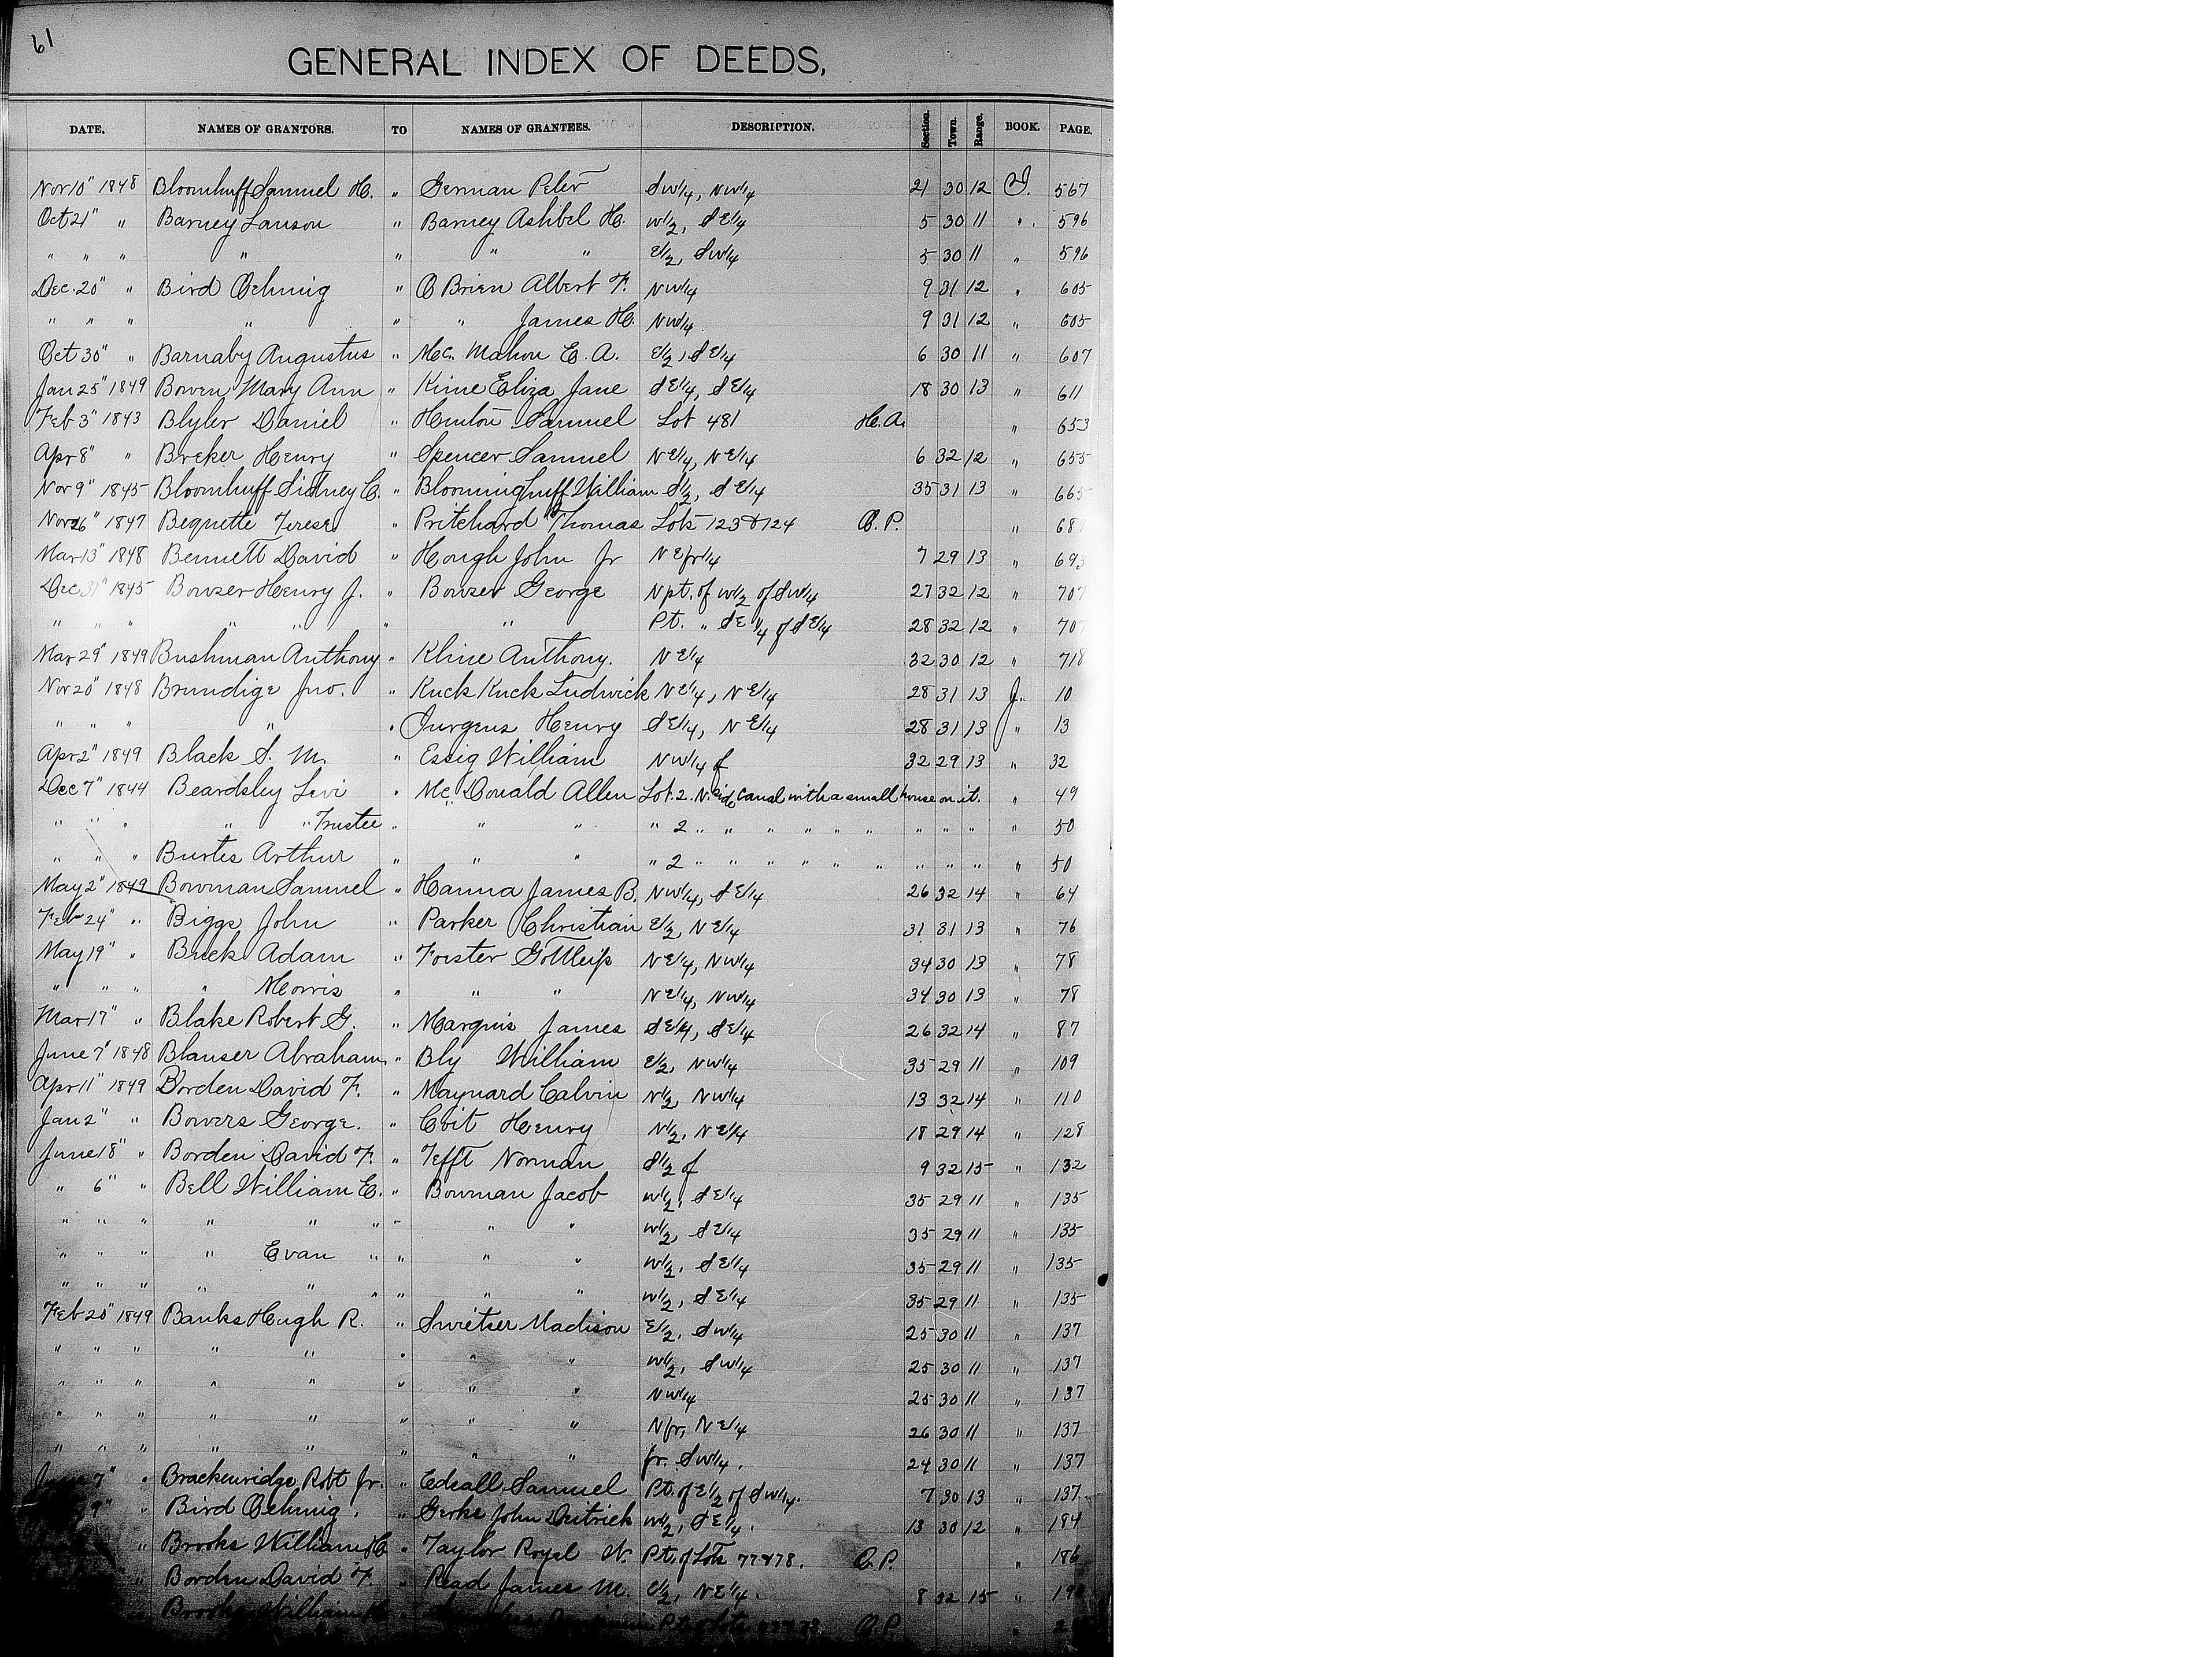 61
GENERAL INDEX OF DEEDS,
DATE. NAMES OF GRANTORS. TO NAMES OF GRANTEES. DESCRIPTION. Section. Town. Range. BOOK. PAGE.
Nov 10" 1848 Bloomhuff Samuel H. " German Peter SW1/4, NW1/4 21 30 12 I. 567
Oct 21" " Barney Lanson " Barney Ashbel H. W1/2, SE1/4 5 30 11 " 596
" " " " " " " E1/2, SW1/4 5 30 11 " 596
Dec. 20" " Bird Ochmig " O Brien Albert F. NW1/4 9 31 12 " 605
" " " " " " James H. NW1/4 9 31 12 " 605
Oct 30" " Barnaby Augustus " Mc. Mahon E. A. E1/2, SE1/4 6 30 11 " 607
Jan 25" 1849 Bowen Mary Ann " Kime Eliza Jane SE1/4, SE1/4 18 30 13 " 611
Feb 3" 1843 Blyler Daniel " Hinton Samuel Lot 481 H.A. " 653
Apr 8" " Breker Henry " Spencer Samuel NE1/4, NE1/4 6 32 12 " 655
Nov 9" 1845 Bloomhuff Sidney C. " Bloominghuff William S1/2, SE1/4 35 31 13 " 665
Nov 26" 1847 Bequette Terese " Pritchard Thomas Lots 123 & 124 O.P. " 68
Mar 13" 1848 Bennett David " Hough John Jr NE fr 1/4 7 29 13 " 693
Dec 31" 1845 Bowser Henry J. " Bowser George N pt. of W1/2 of SW1/4 27 32 12 " 707
" " " " " " " Pt. " SE1/4 of SE1/4 28 32 12 " 707
Mar 29" 1849 Bushman Anthony " Kline Anthony. NE1/4 32 30 12 " 718
Nov 20" 1848 Brundige Jno. " Kuck Kuck Ludwick NE1/4, NE1/4 28 31 13 J. 10
" " " " " Jurgens Henry SE1/4, NE1/4 28 31 13 " 13
Apr 2" 1849 Black S. M. " Essig William NW1/4 of 32 29 13 " 32
Dec 7" 1844 Beardsley Levi " Mc. Donald Allen Lot. 2. N. side Canal with a small house on it. " 49
" " " " " Trustee " " " " 2 " " " " " " " " " " " 50
" " " Burtes Arthur " " " " 2 " " " " " " " " " " " 50
May 2" 1849 Bowman Samuel " Hanna James B. NW1/4, SE1/4 26 32 14 " 64
Feb 24" " Biggs John " Parker Christian E1/2, NE1/4 31 31 13 " 76
May 19" " Buck Adam " Forster Gottleip NE1/4, NW1/4 34 30 13 " 78
" " " " Morris " " " NE1/4, NW1/4 34 30 13 " 78
Mar 17" " Blake Robert G. " Marquis James SE1/4, SE1/4 26 32 14 " 87
June 7" 1848 Blauser Abraham " Bly William E1/2, NW1/4 35 29 11 " 109
Apr 11" 1849 Borden David F. " Maynard Calvin N1/2, NW1/4 13 32 14 " 110
Jan 2" " Bowers George. " Coit Henry N1/2, NE1/4 18 29 14 " 128
June 18" " Borden David F. " Tefft Norman S1/2 of 9 32 15 " 132
" 6" " Bell William E. " Bowman Jacob W1/2, SE1/4 35 29 11 " 135
" " " " " " " " " W1/2, SE1/4 35 29 11 " 135
" " " " Evan " " " " W1/2, SE1/4 35 29 11 " 135
" " " " " " " " " W1/2, SE1/4 35 29 11 " 135
Feb 20" 1849 Banks Hugh R. " Swietser Madison E1/2, SW1/4 25 30 11 " 137
" " " " " " " " W1/2, SW1/4 25 30 11 " 137
" " " " " " " " NW1/4 25 30 11 " 137
" " " " " " " " N fr, NE1/4 26 30 11 " 137
" " " " " " " " fr. SW1/4. 24 30 11 " 137
7" " Brackenridge Robt Jr. " Edsall Samuel Pt. of E1/2 of SW1/4. 7 30 13 " 137
9" " Bird Ochmig. " Gerke John Deitrick W1/2, SE1/4. 13 30 12 " 184
" Brooks William H. " Taylor Royal W. Pt. of Lots 77 & 78. O.P. " 186
" Borden David F. " Read James M. E1/2, NE1/4. 8 32 15 " 19
Brooks William H. " Pt. of Lots O.P. " 2